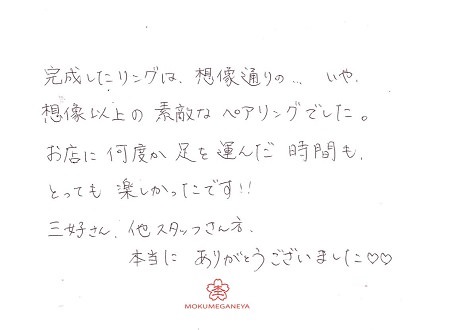 完成したリングは、想像通りの… いや、
想像以上の素敵なペアリングでした。
お店に何度か足を運んだ時間も、
とっても楽しかったです!!
三好さん、他スタッフさん方、
本当に ありがとうございました♡♡
MOKUMEGANEYA